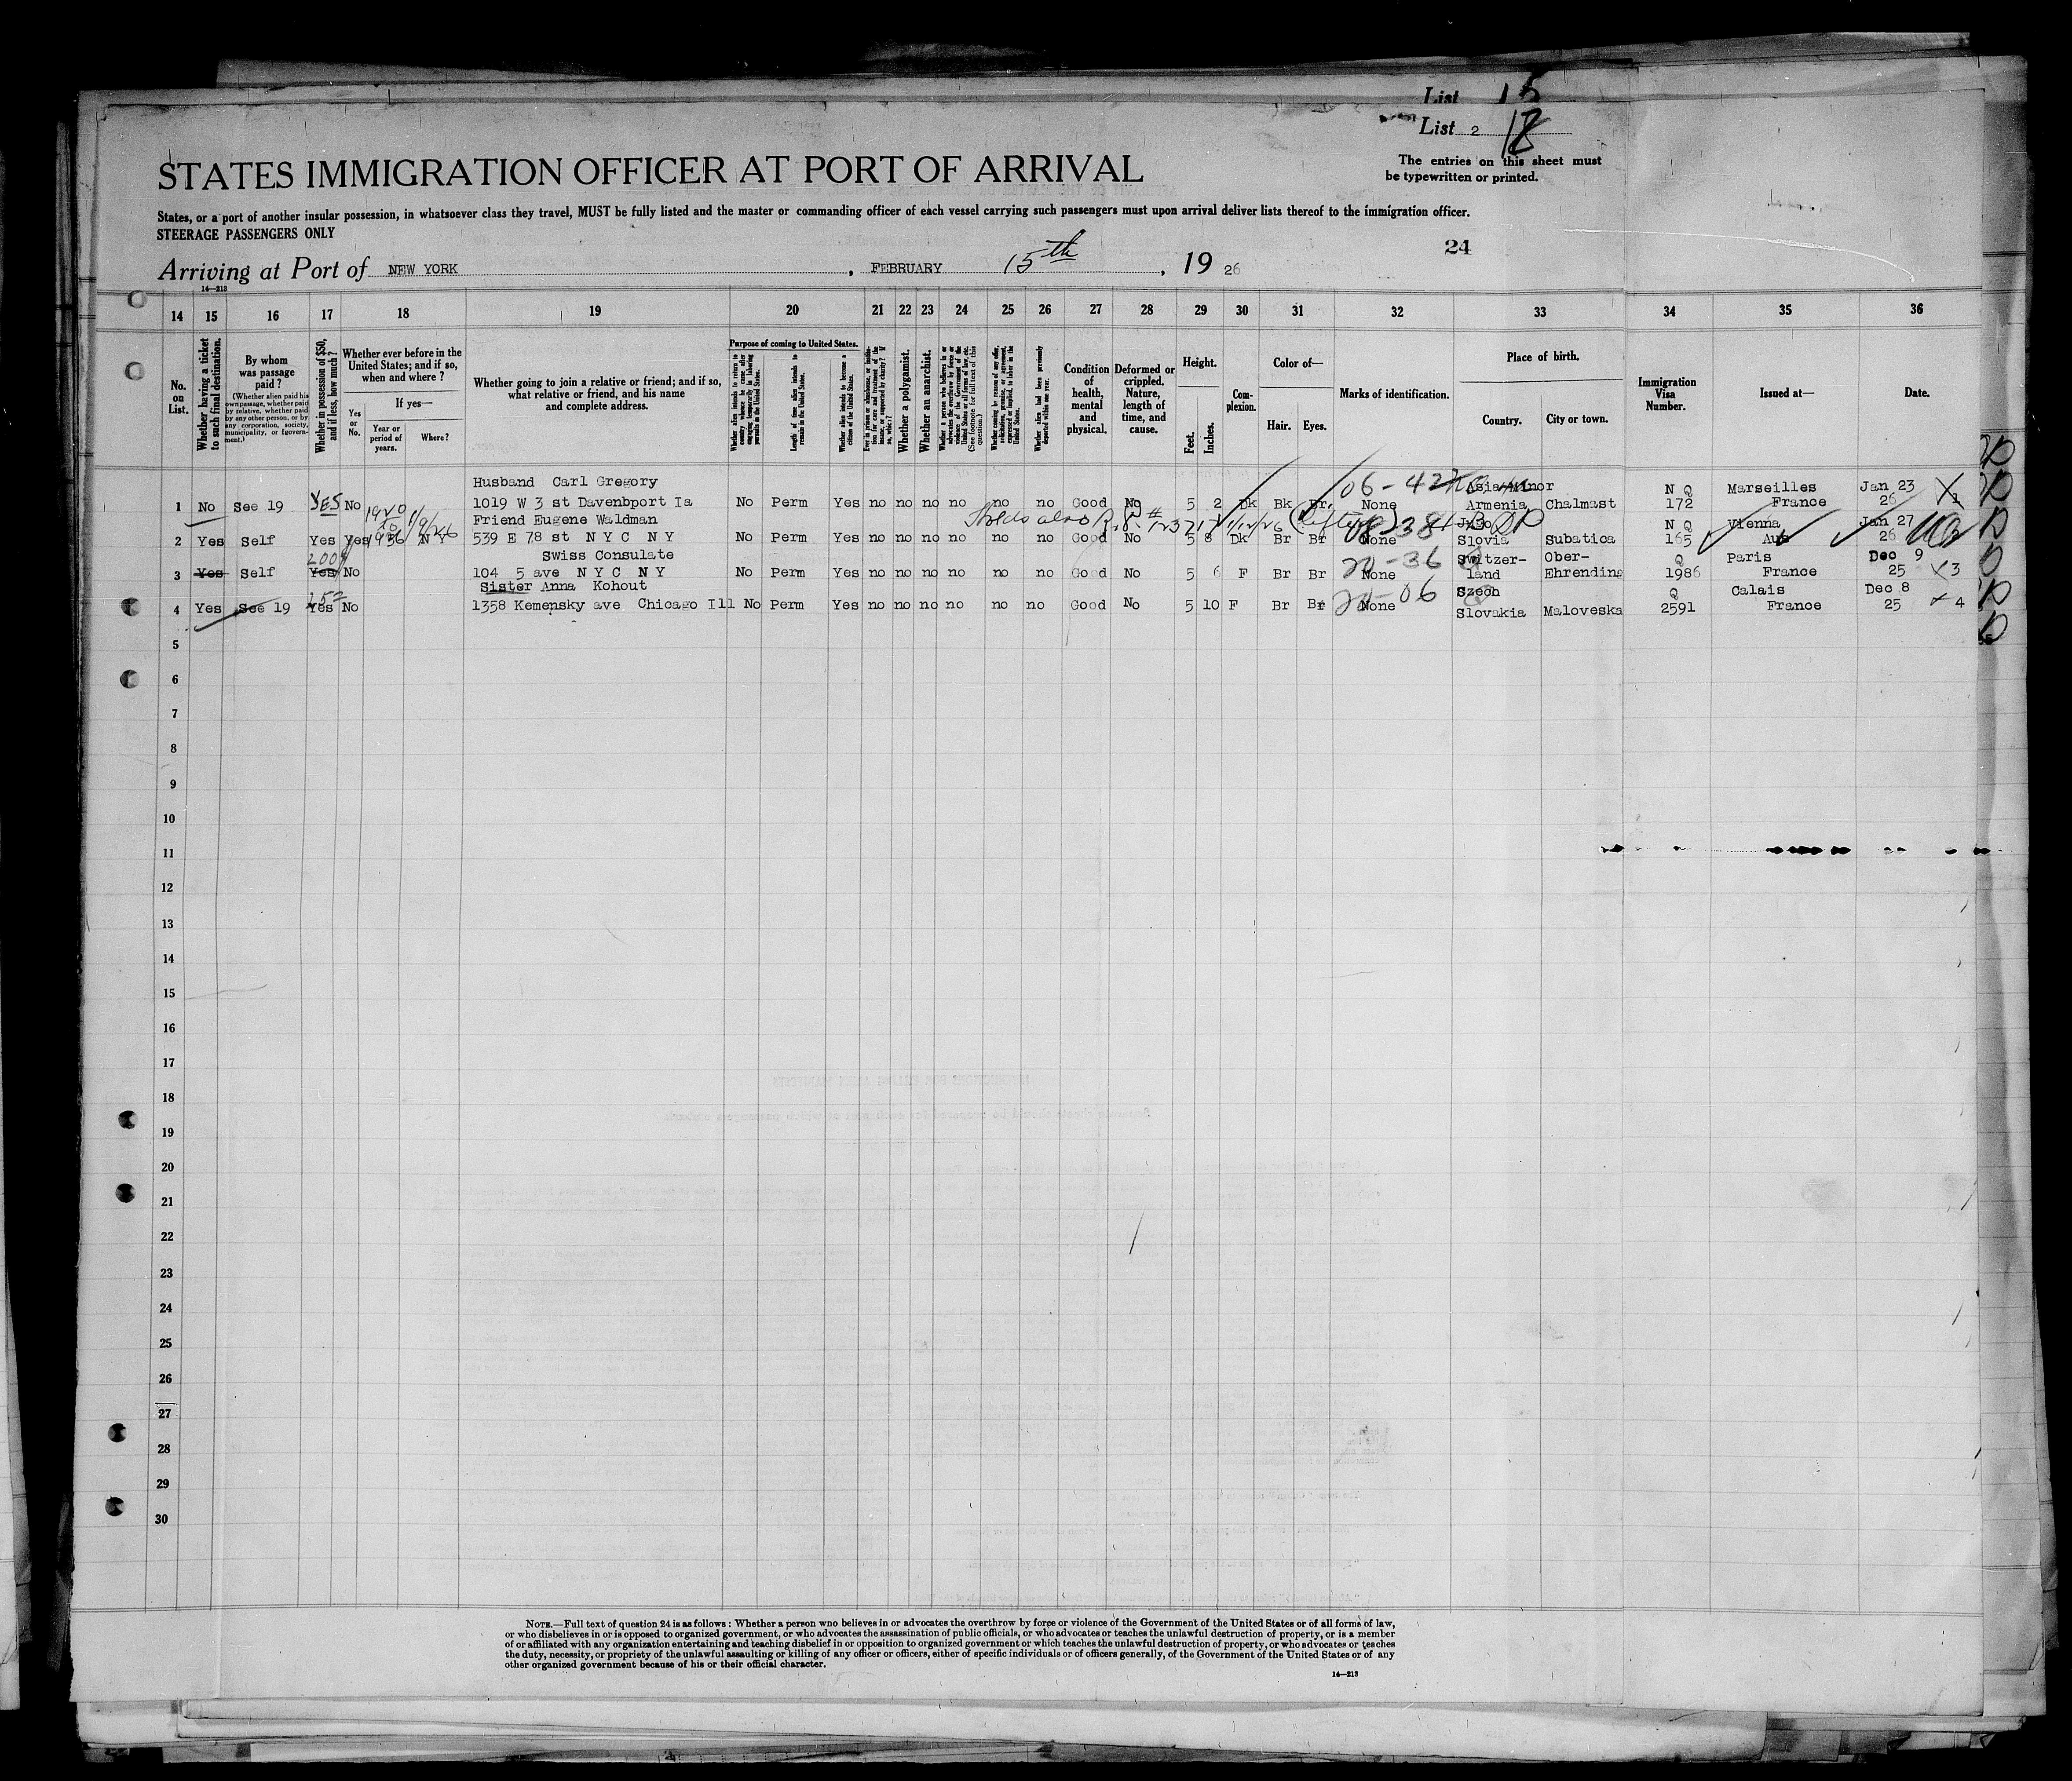 List 15
List 2 18
The entries on this sheet must
be typewritten or printed.
STATES IMMIGRATION OFFICER AT PORT OF ARRIVAL
States, or a port of another insular possession, in whatsoever class they travel, MUST be fully listed and the master or commanding officer of each vessel carrying such passengers must upon arrival deliver lists thereof to the immigration officer.
STEERAGE PASSENGERS ONLY
24
Arriving at Port of NEW YORK, FEBRUARY 15th, 19 26
14—213
14 15 16 17 18 19 20 21 22 23 24 25 26 27 28 29 30 31 32 33 34 35 36
No. on List.
Whether having a ticket to such final destination.
By whom was passage paid?
(Whether alien paid his own passage, whether paid by relative, whether paid by any other person, or by any corporation, society, municipality, or government.)
Whether in possession of $50, and if less, how much?
Whether ever before in the United States; and if so, when and where?
If yes—
Yes or No.
Year or period of years.
Where?
Whether going to join a relative or friend; and if so, what relative or friend, and his name and complete address.
Purpose of coming to United States.
Whether alien intends to return to country whence he came after engaging temporarily in laboring pursuits in the United States.
Length of time alien intends to remain in the United States.
Whether alien intends to become a citizen of the United States.
Whether a polygamist.
Whether an anarchist.
(See footnote for full text of this question.)
Whether alien had been previously deported within one year.
Condition of health, mental and physical.
Deformed or crippled. Nature, length of time, and cause.
Height.
Feet.
Inches.
Complexion.
Color of—
Hair.
Eyes.
Marks of identification.
Place of birth.
Country.
City or town.
Immigration Visa Number.
Issued at—
Date.
Husband Carl Gregory Asia Minor N Q Marseilles Jan 23
1 No See 19 YES No 1019 W 3 st Davenbport Ia No Perm Yes no no no no no no Good No 5 2 Dk Bk Br None Armenia Chalmast 172 France 26 1
06-427
Friend Eugene Waldman N Q Vienna Jan 27
2 Yes Self Yes Yes 539 E 78 st N Y C N Y No Perm Yes no no no no no no Good No 5 8 Dk Br Br None Slovia Subatica 165 Aus 26
1920 to 1926 N Y
Holds also
Swiss Consulate Switzer- Ober- Q Paris Dec 9
3 Yes Self Yes No 104 5 ave N Y C N Y No Perm Yes no no no no no no Good No 5 6 F Br Br None land Ehrending 1986 France 25 3
200
20-36
Sister Anna Kohout Szech Q Calais Dec 8
4 Yes See 19 Yes No 1358 Kemensky ave Chicago Ill No Perm Yes no no no no no no Good No 5 10 F Br Br None Slovakia Maloveska 2591 France 25 4
20-06
5
6
7
8
9
10
11
12
13
14
15
16
17
18
19
20
21
22
23
24
25
26
27
28
29
30
NOTE.—Full text of question 24 is as follows: Whether a person who believes in or advocates the overthrow by force or violence of the Government of the United States or of all forms of law,
or who disbelieves in or is opposed to organized government, or who advocates the assassination of public officials, or who advocates or teaches the unlawful destruction of property, or is a member
of or affiliated with any organization entertaining and teaching disbelief in or opposition to organized government or which teaches the unlawful destruction of property, or who advocates or teaches
the duty, necessity, or propriety of the unlawful assaulting or killing of any officer or officers, either of specific individuals or of officers generally, of the Government of the United States or of any
other organized government because of his or their official character.
14—213